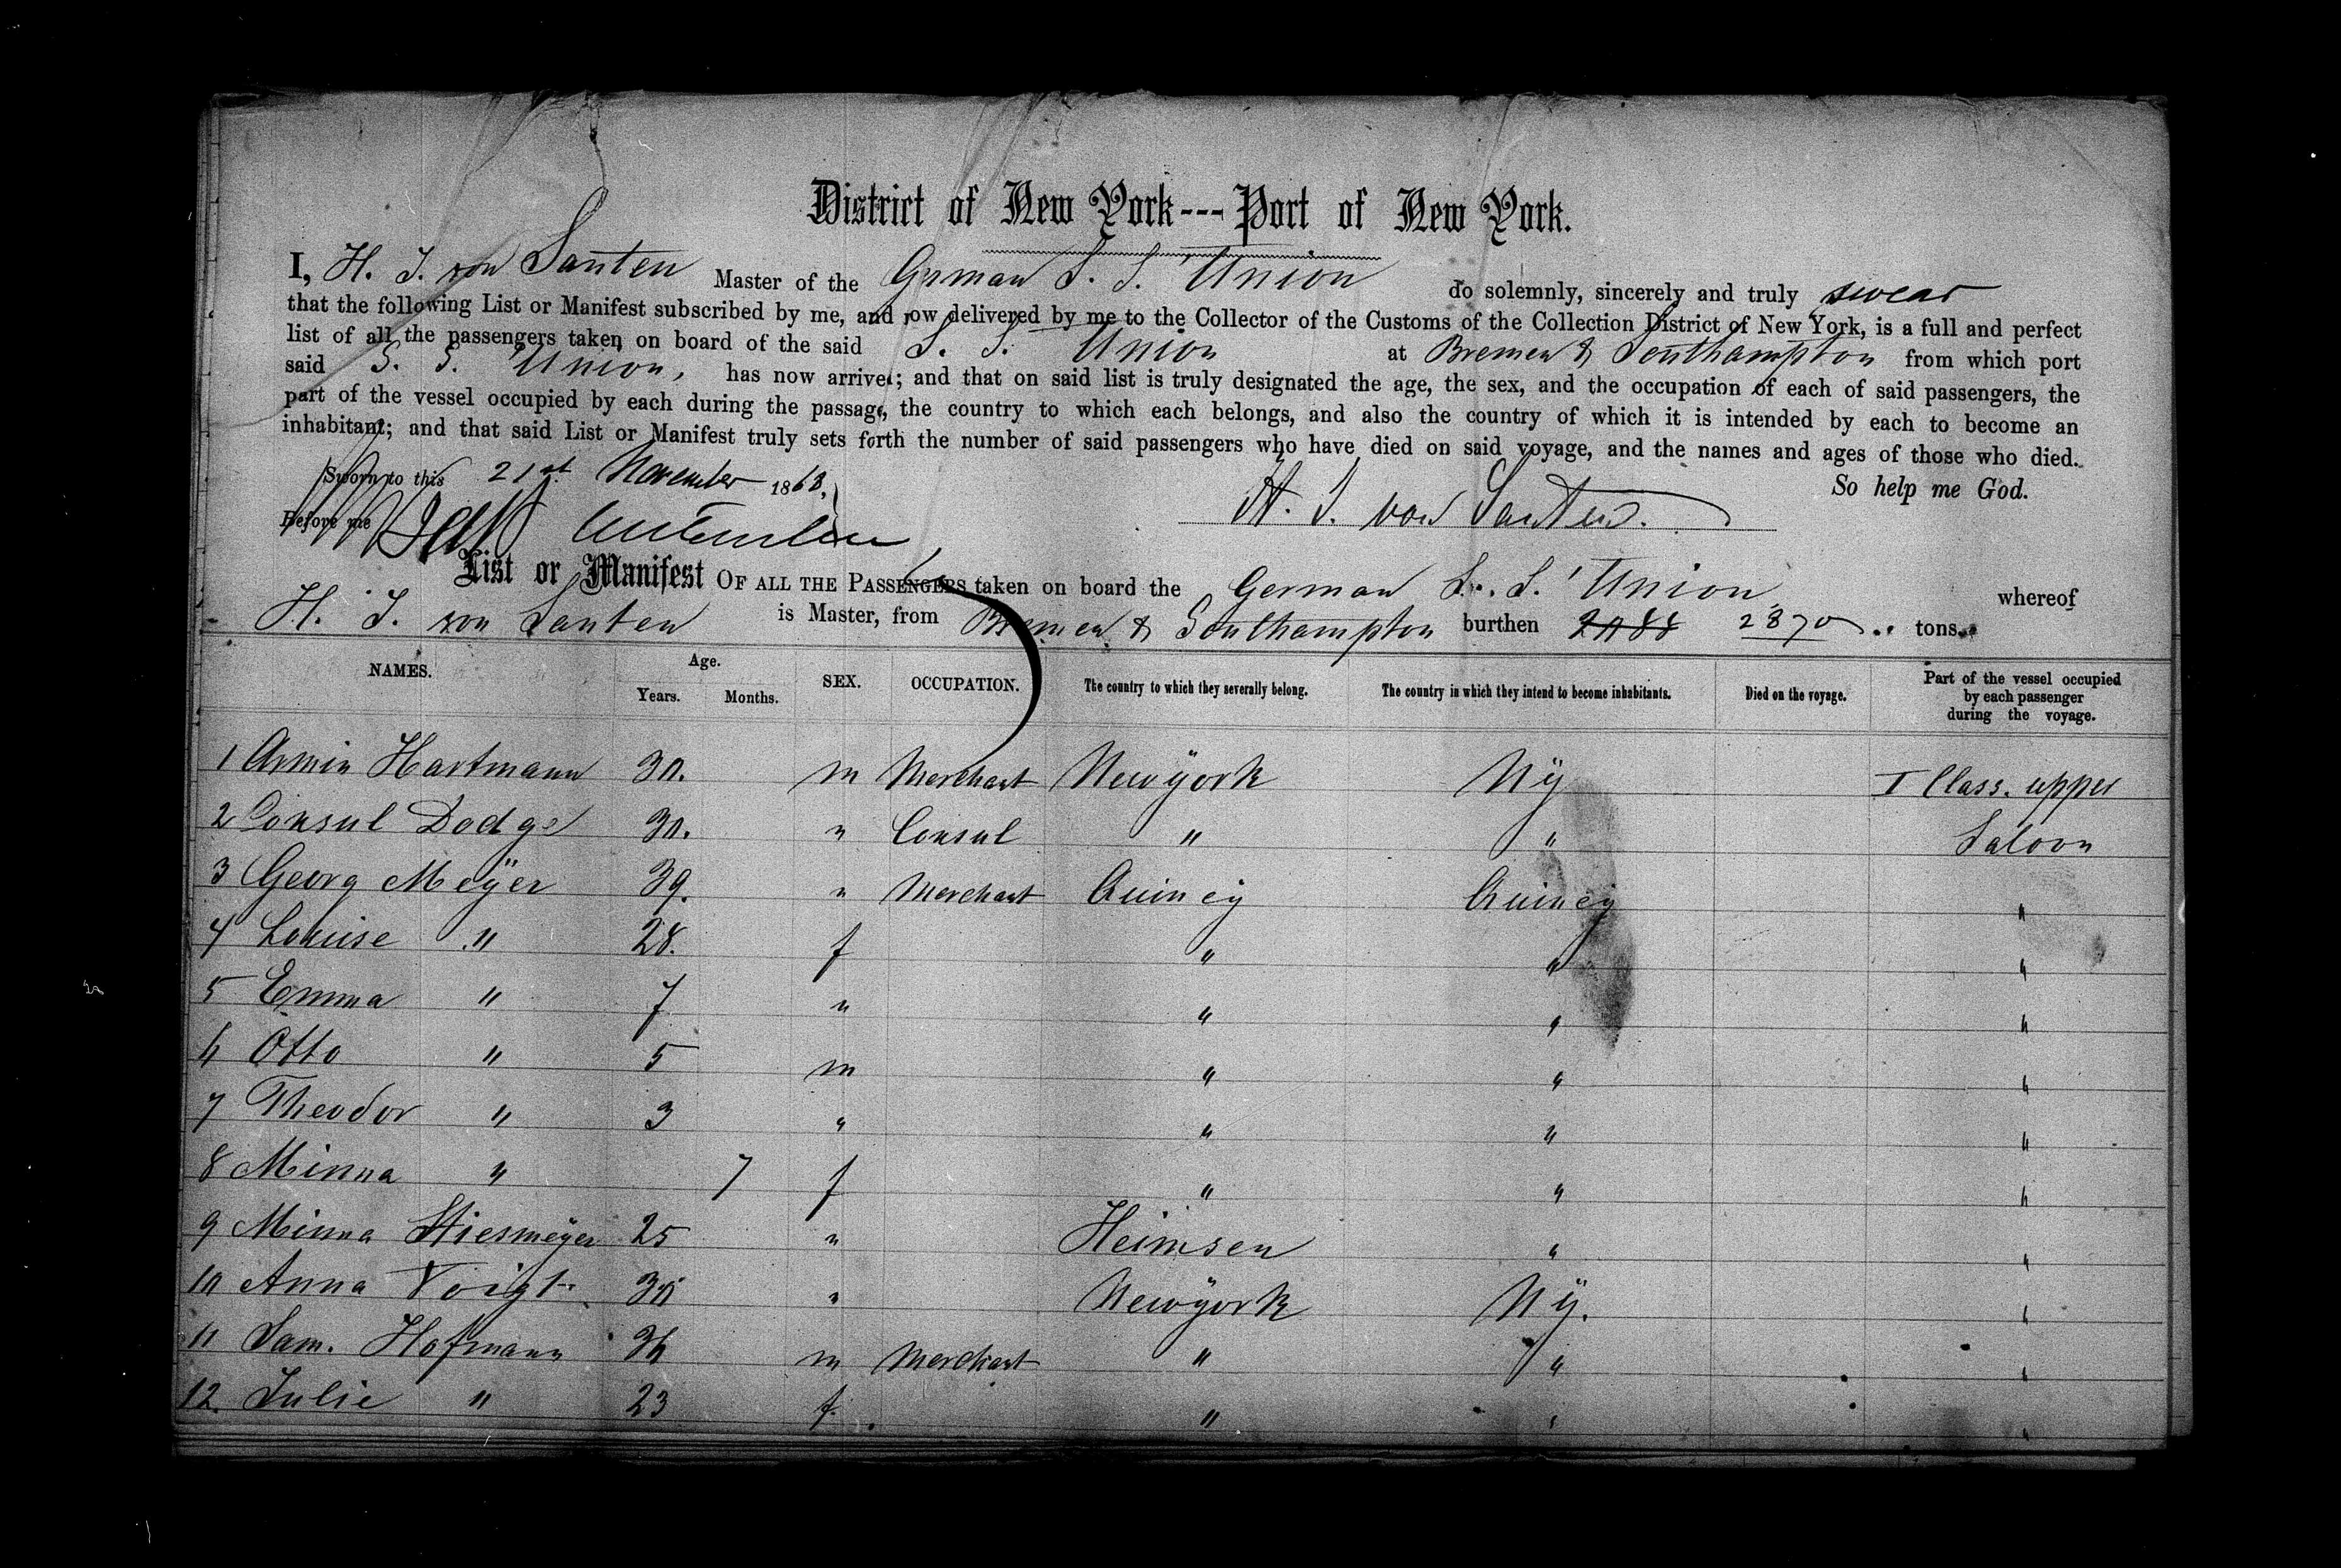 District of New York---Port of New York.
I, H. J. von Santen Master of the German S. S. 'Union do solemnly, sincerely and truly swear
that the following List or Manifest subscribed by me, and now delivered by me to the Collector of the Customs of the Collection District of New York, is a full and perfect
list of all the passengers taken on board of the said S. S. Union at Bremen & Southampton from which port
said S. S. Union, has now arrived; and that on said list is truly designated the age, the sex, and the occupation of each of said passengers, the
part of the vessel occupied by each during the passage, the country to which each belongs, and also the country of which it is intended by each to become an
inhabitant; and that said List or Manifest truly sets forth the number of said passengers who have died on said voyage, and the names and ages of those who died.
So help me God.
Sworn to this 21st November 1868,
H. J. von Santen.
Before me
List or Manifest OF ALL THE PASSENGERS taken on board the German S. S. 'Union whereof
H. J. von Santen is Master, from Bremen & Southampton burthen 2870 tons.
NAMES. Age. Years. Months. SEX. OCCUPATION. The country to which they severally belong. The country in which they intend to become inhabitants. Died on the voyage. Part of the vessel occupied by each passenger during the voyage.
1 Armin Hartmann 30. m Merchant Newÿork Nÿ I Class. upper
2 Consul Dodge 30. " Consul " " Saloon
3 Georg Meÿer 39. " Merchant Quincy Quincy "
4 Louise " 28. f " " "
5 Emma " 7 " " " "
6 Otto " 5 m " " "
7 Theodor " 3 " " " "
8 Minna " 7 f " " "
9 Minna Stiesmeÿer 25 " Heimsen " "
10 Anna Voigt 30 " Newÿork Nÿ. "
11 Sam. Hofmann 36 m Merchant " " "
12. Julie " 23 f. " " "